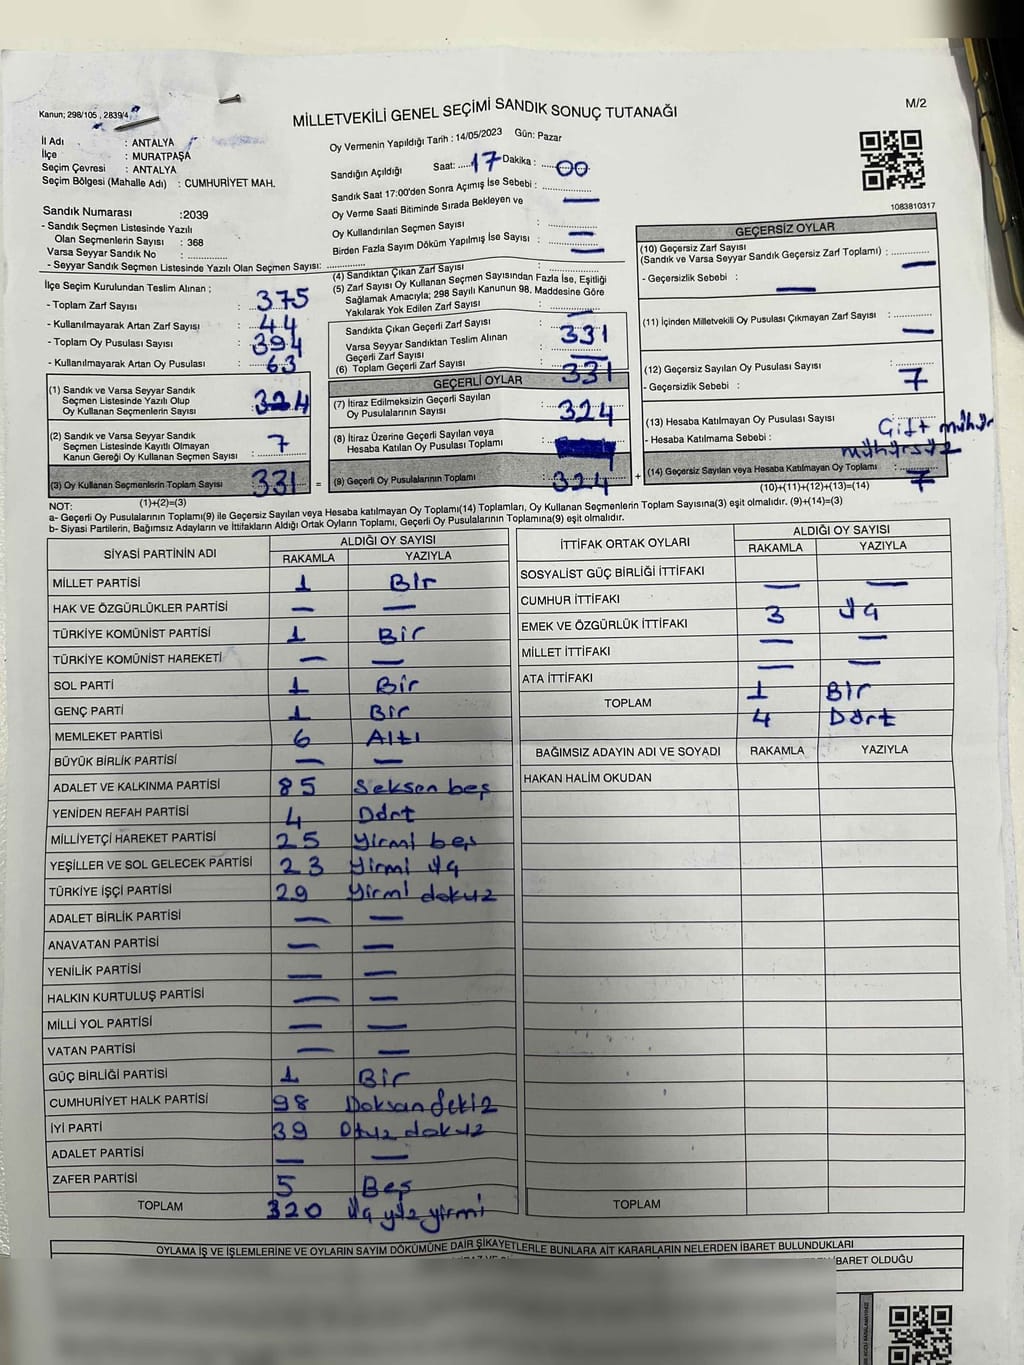 Kanun; 298/105 , 2839/4
MİLLETVEKİLİ GENEL SEÇİMİ SANDIK SONUÇ TUTANAĞI
M/2
İl Adı : ANTALYA
İlçe : MURATPAŞA
Seçim Çevresi : ANTALYA
Seçim Bölgesi (Mahalle Adı) : CUMHURİYET MAH.
Sandık Numarası :2039
- Sandık Seçmen Listesinde Yazılı
Olan Seçmenlerin Sayısı : 368
Varsa Seyyar Sandık No :
- Seyyar Sandık Seçmen Listesinde Yazılı Olan Seçmen Sayısı:
Oy Vermenin Yapıldığı Tarih : 14/05/2023 Gün: Pazar
Sandığın Açıldığı Saat: 17 Dakika : 00
Sandık Saat 17:00'den Sonra Açımış İse Sebebi :
Oy Verme Saati Bitiminde Sırada Bekleyen ve
Oy Kullandırılan Seçmen Sayısı : —
Birden Fazla Sayım Döküm Yapılmış İse Sayısı : —
1083810317
İlçe Seçim Kurulundan Teslim Alınan ;
- Toplam Zarf Sayısı : 375
- Kullanılmayarak Artan Zarf Sayısı : 44
- Toplam Oy Pusulası Sayısı : 394
- Kullanılmayarak Artan Oy Pusulası : 63
(1) Sandık ve Varsa Seyyar Sandık
Seçmen Listesinde Yazılı Olup
Oy Kullanan Seçmenlerin Sayısı : 324
(2) Sandık ve Varsa Seyyar Sandık
Seçmen Listesinde Kayıtlı Olmayan
Kanun Gereği Oy Kullanan Seçmen Sayısı : 7
(3) Oy Kullanan Seçmenlerin Toplam Sayısı : 331 =
(1)+(2)=(3)
(4) Sandıktan Çıkan Zarf Sayısı :
(5) Zarf Sayısı Oy Kullanan Seçmen Sayısından Fazla İse, Eşitliği
Sağlamak Amacıyla; 298 Sayılı Kanunun 98. Maddesine Göre
Yakılarak Yok Edilen Zarf Sayısı : —
Sandıkta Çıkan Geçerli Zarf Sayısı : 331
Varsa Seyyar Sandıktan Teslim Alınan
Geçerli Zarf Sayısı : —
(6) Toplam Geçerli Zarf Sayısı : 331
GEÇERLİ OYLAR
(7) İtiraz Edilmeksizin Geçerli Sayılan
Oy Pusulalarının Sayısı : 324
(8) İtiraz Üzerine Geçerli Sayılan veya
Hesaba Katılan Oy Pusulası Toplamı :
(9) Geçerli Oy Pusulalarının Toplamı : 324 +
GEÇERSİZ OYLAR
(10) Geçersiz Zarf Sayısı
(Sandık ve Varsa Seyyar Sandık Geçersiz Zarf Toplamı) : —
- Geçersizlik Sebebi : —
(11) İçinden Milletvekili Oy Pusulası Çıkmayan Zarf Sayısı : —
(12) Geçersiz Sayılan Oy Pusulası Sayısı : 7
- Geçersizlik Sebebi :
(13) Hesaba Katılmayan Oy Pusulası Sayısı :
- Hesaba Katılmama Sebebi : Çift mühür
mühürsüz
(14) Geçersiz Sayılan veya Hesaba Katılmayan Oy Toplamı : 7
(10)+(11)+(12)+(13)=(14)
NOT:
a- Geçerli Oy Pusulalarının Toplamı(9) ile Geçersiz Sayılan veya Hesaba katılmayan Oy Toplamı(14) Toplamları, Oy Kullanan Seçmenlerin Toplam Sayısına(3) eşit olmalıdır. (9)+(14)=(3)
b- Siyasi Partilerin, Bağımsız Adayların ve İttifakların Aldığı Ortak Oyların Toplamı, Geçerli Oy Pusulalarının Toplamına(9) eşit olmalıdır.
SİYASİ PARTİNİN ADI ALDIĞI OY SAYISI
RAKAMLA YAZIYLA
MİLLET PARTİSİ 1 Bir
HAK VE ÖZGÜRLÜKLER PARTİSİ — —
TÜRKİYE KOMÜNİST PARTİSİ 1 Bir
TÜRKİYE KOMÜNİST HAREKETİ — —
SOL PARTİ 1 Bir
GENÇ PARTİ 1 Bir
MEMLEKET PARTİSİ 6 Altı
BÜYÜK BİRLİK PARTİSİ — —
ADALET VE KALKINMA PARTİSİ 85 Seksen beş
YENİDEN REFAH PARTİSİ 4 Dört
MİLLİYETÇİ HAREKET PARTİSİ 25 Yirmi beş
YEŞİLLER VE SOL GELECEK PARTİSİ 23 Yirmi üç
TÜRKİYE İŞÇİ PARTİSİ 29 Yirmi dokuz
ADALET BİRLİK PARTİSİ — —
ANAVATAN PARTİSİ — —
YENİLİK PARTİSİ — —
HALKIN KURTULUŞ PARTİSİ — —
MİLLİ YOL PARTİSİ — —
VATAN PARTİSİ — —
GÜÇ BİRLİĞİ PARTİSİ 1 Bir
CUMHURİYET HALK PARTİSİ 98 Doksan sekiz
İYİ PARTİ 39 Otuz dokuz
ADALET PARTİSİ — —
ZAFER PARTİSİ 5 Beş
TOPLAM 320 Üç yüz yirmi
İTTİFAK ORTAK OYLARI ALDIĞI OY SAYISI
RAKAMLA YAZIYLA
SOSYALİST GÜÇ BİRLİĞİ İTTİFAKI — —
CUMHUR İTTİFAKI 3 üç
EMEK VE ÖZGÜRLÜK İTTİFAKI — —
MİLLET İTTİFAKI — —
ATA İTTİFAKI 1 Bir
TOPLAM 4 Dört
BAĞIMSIZ ADAYIN ADI VE SOYADI RAKAMLA YAZIYLA
HAKAN HALİM OKUDAN
TOPLAM
OYLAMA İŞ VE İŞLEMLERİNE VE OYLARIN SAYIM DÖKÜMÜNE DAİR ŞİKAYETLERLE BUNLARA AİT KARARLARIN NELERDEN İBARET BULUNDUKLARI
İBARET OLDUĞU